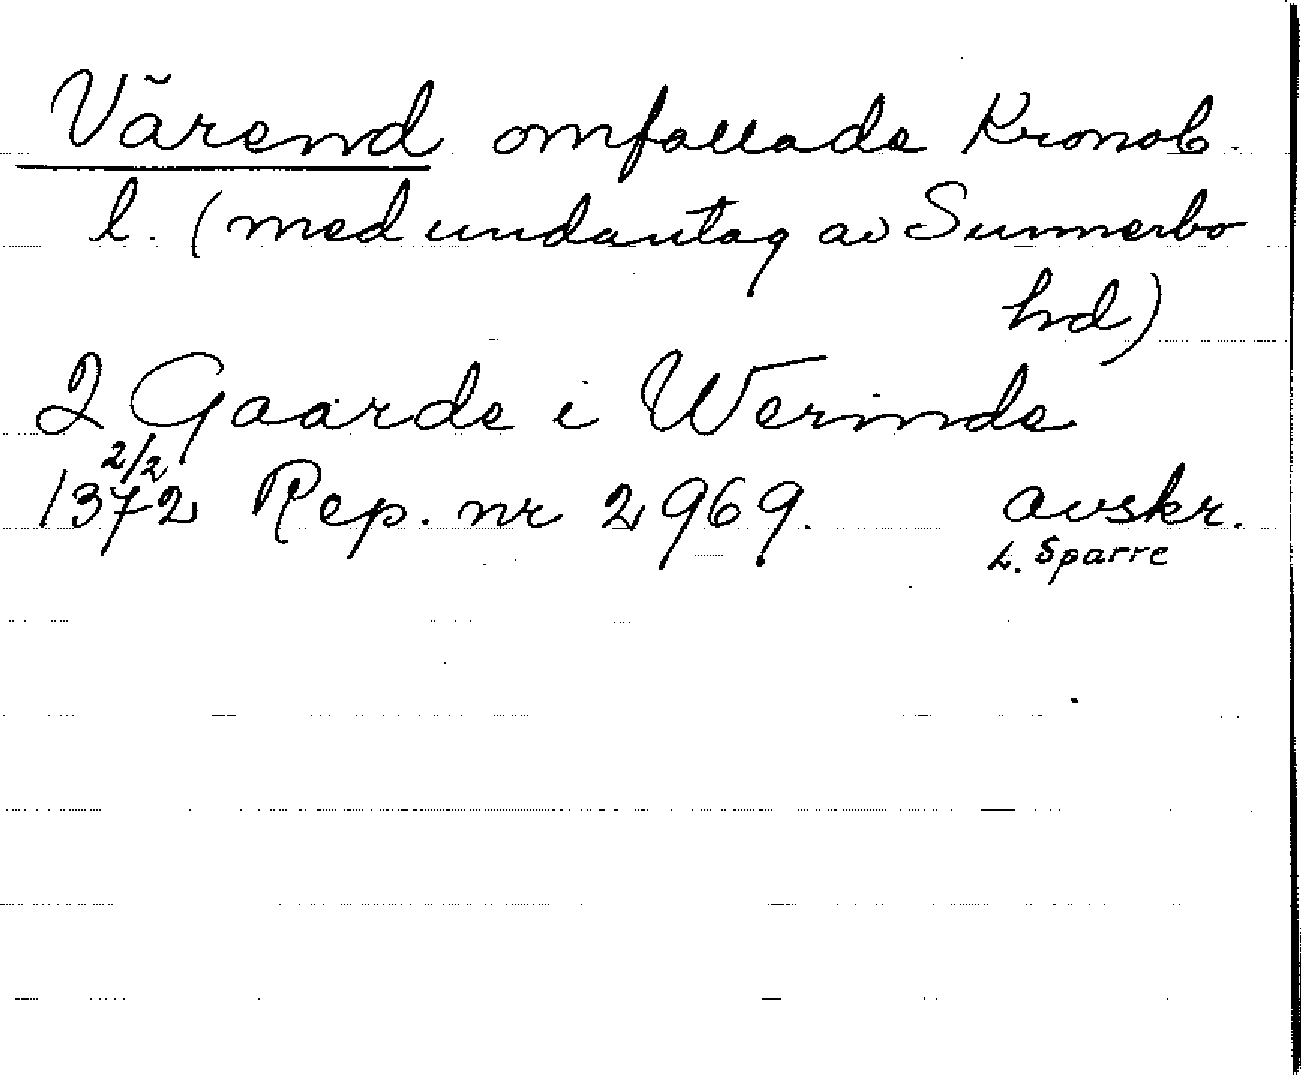 Värend omfattade Kronob.
l. (med undantag av Sunnerbo
hd)
2 Gaarde i Werinde
2/2
1372 Rep. nr 2969. avskr.
L. Sparre